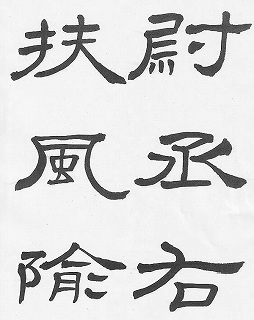 尉丞右
扶風隃